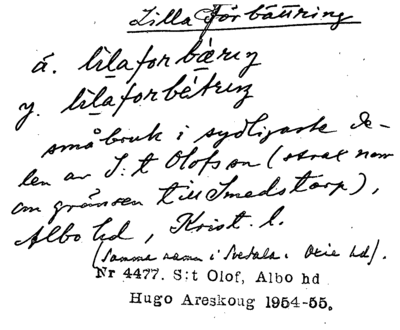 Lilla Förbättring
ä. lilaforbæriŋ
y. lilaforbétriŋ
småbruk i sydligaste de-
len av S:t Olofs sn (strax norr
om gränsen till Smedstorp),
Albo hd, Krist. l.
(samma namn i Svedala, Oxie hd).
Nr 4477. S:t Olof, Albo hd
Hugo Areskoug 1954-55.